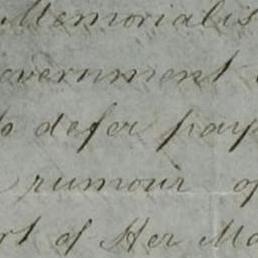 Memorialis
overnment
to defer pay
rumour of
rt of Her Ma